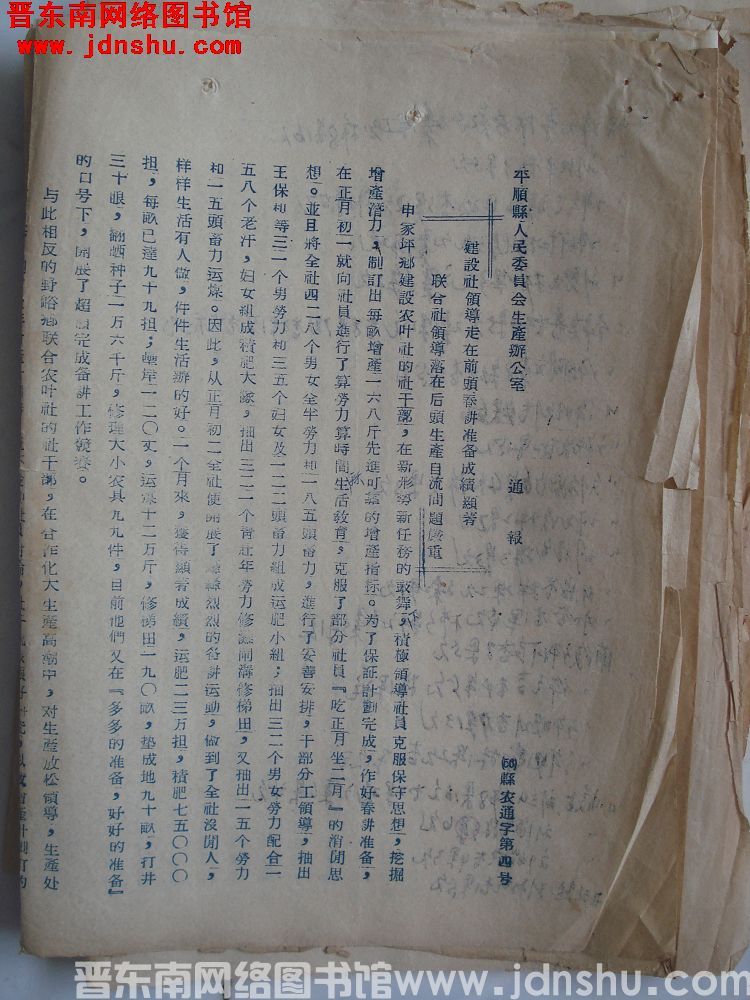 晋东南网络图书馆
www.jdnshu.com
平順縣人民委員会生產辦公室 通報 (56)縣农通字第四号
建設社領導走在前頭春耕准备成績顯著
联合社領導落在后頭生產自流問題嚴重
申家坪鄉建設农叶社的社干部，在新形势新任務的鼓舞，積極領導社員克服保守思想，挖掘
增產潛力，制訂出每畝增產一六八斤先進可靠的增產指标。为了保証計劃完成，作好春耕准备，
在正月初一就向社員進行了算勞力算時間生活教育，克服了部分社員『吃正月坐二月』的消閒思
想。並且將全社四二八个男女全半勞力和一八五頭畜力，進行了妥善安排，干部分工領導，抽出
王保和等三二个男勞力和三五个妇女及一二二頭畜力組成运肥小組；抽出三二个男女勞力配合一
五八个老汗，妇女組成積肥大隊，抽出三二一个青壯年勞力修灘閘溝修梯田，又抽出一五个勞力
和一五頭畜力运煤。因此，从正月初二全社便開展了轟轟烈烈的备耕运動，做到了全社沒閒人，
样样生活有人做，件件生活辦的好。一个月來，獲得顯著成績，运肥二三万担，積肥七五〇〇〇
担，每畝已達九十九担；壘岸一二〇丈，运煤十二万斤，修梯田一九〇畝，垫成地九十畝，打井
三十眼，翻晒种子一万六千斤，修理大小农具九九件，目前他們又在『多多的准备，好好的准备』
的口号下，開展了超額完成备耕工作競賽。
与此相反的野峪鄉联合农叶社的社干部，在合作化大生產高潮中，对生產放松領導，生產处
晋东南网络图书馆www.jdnshu.com